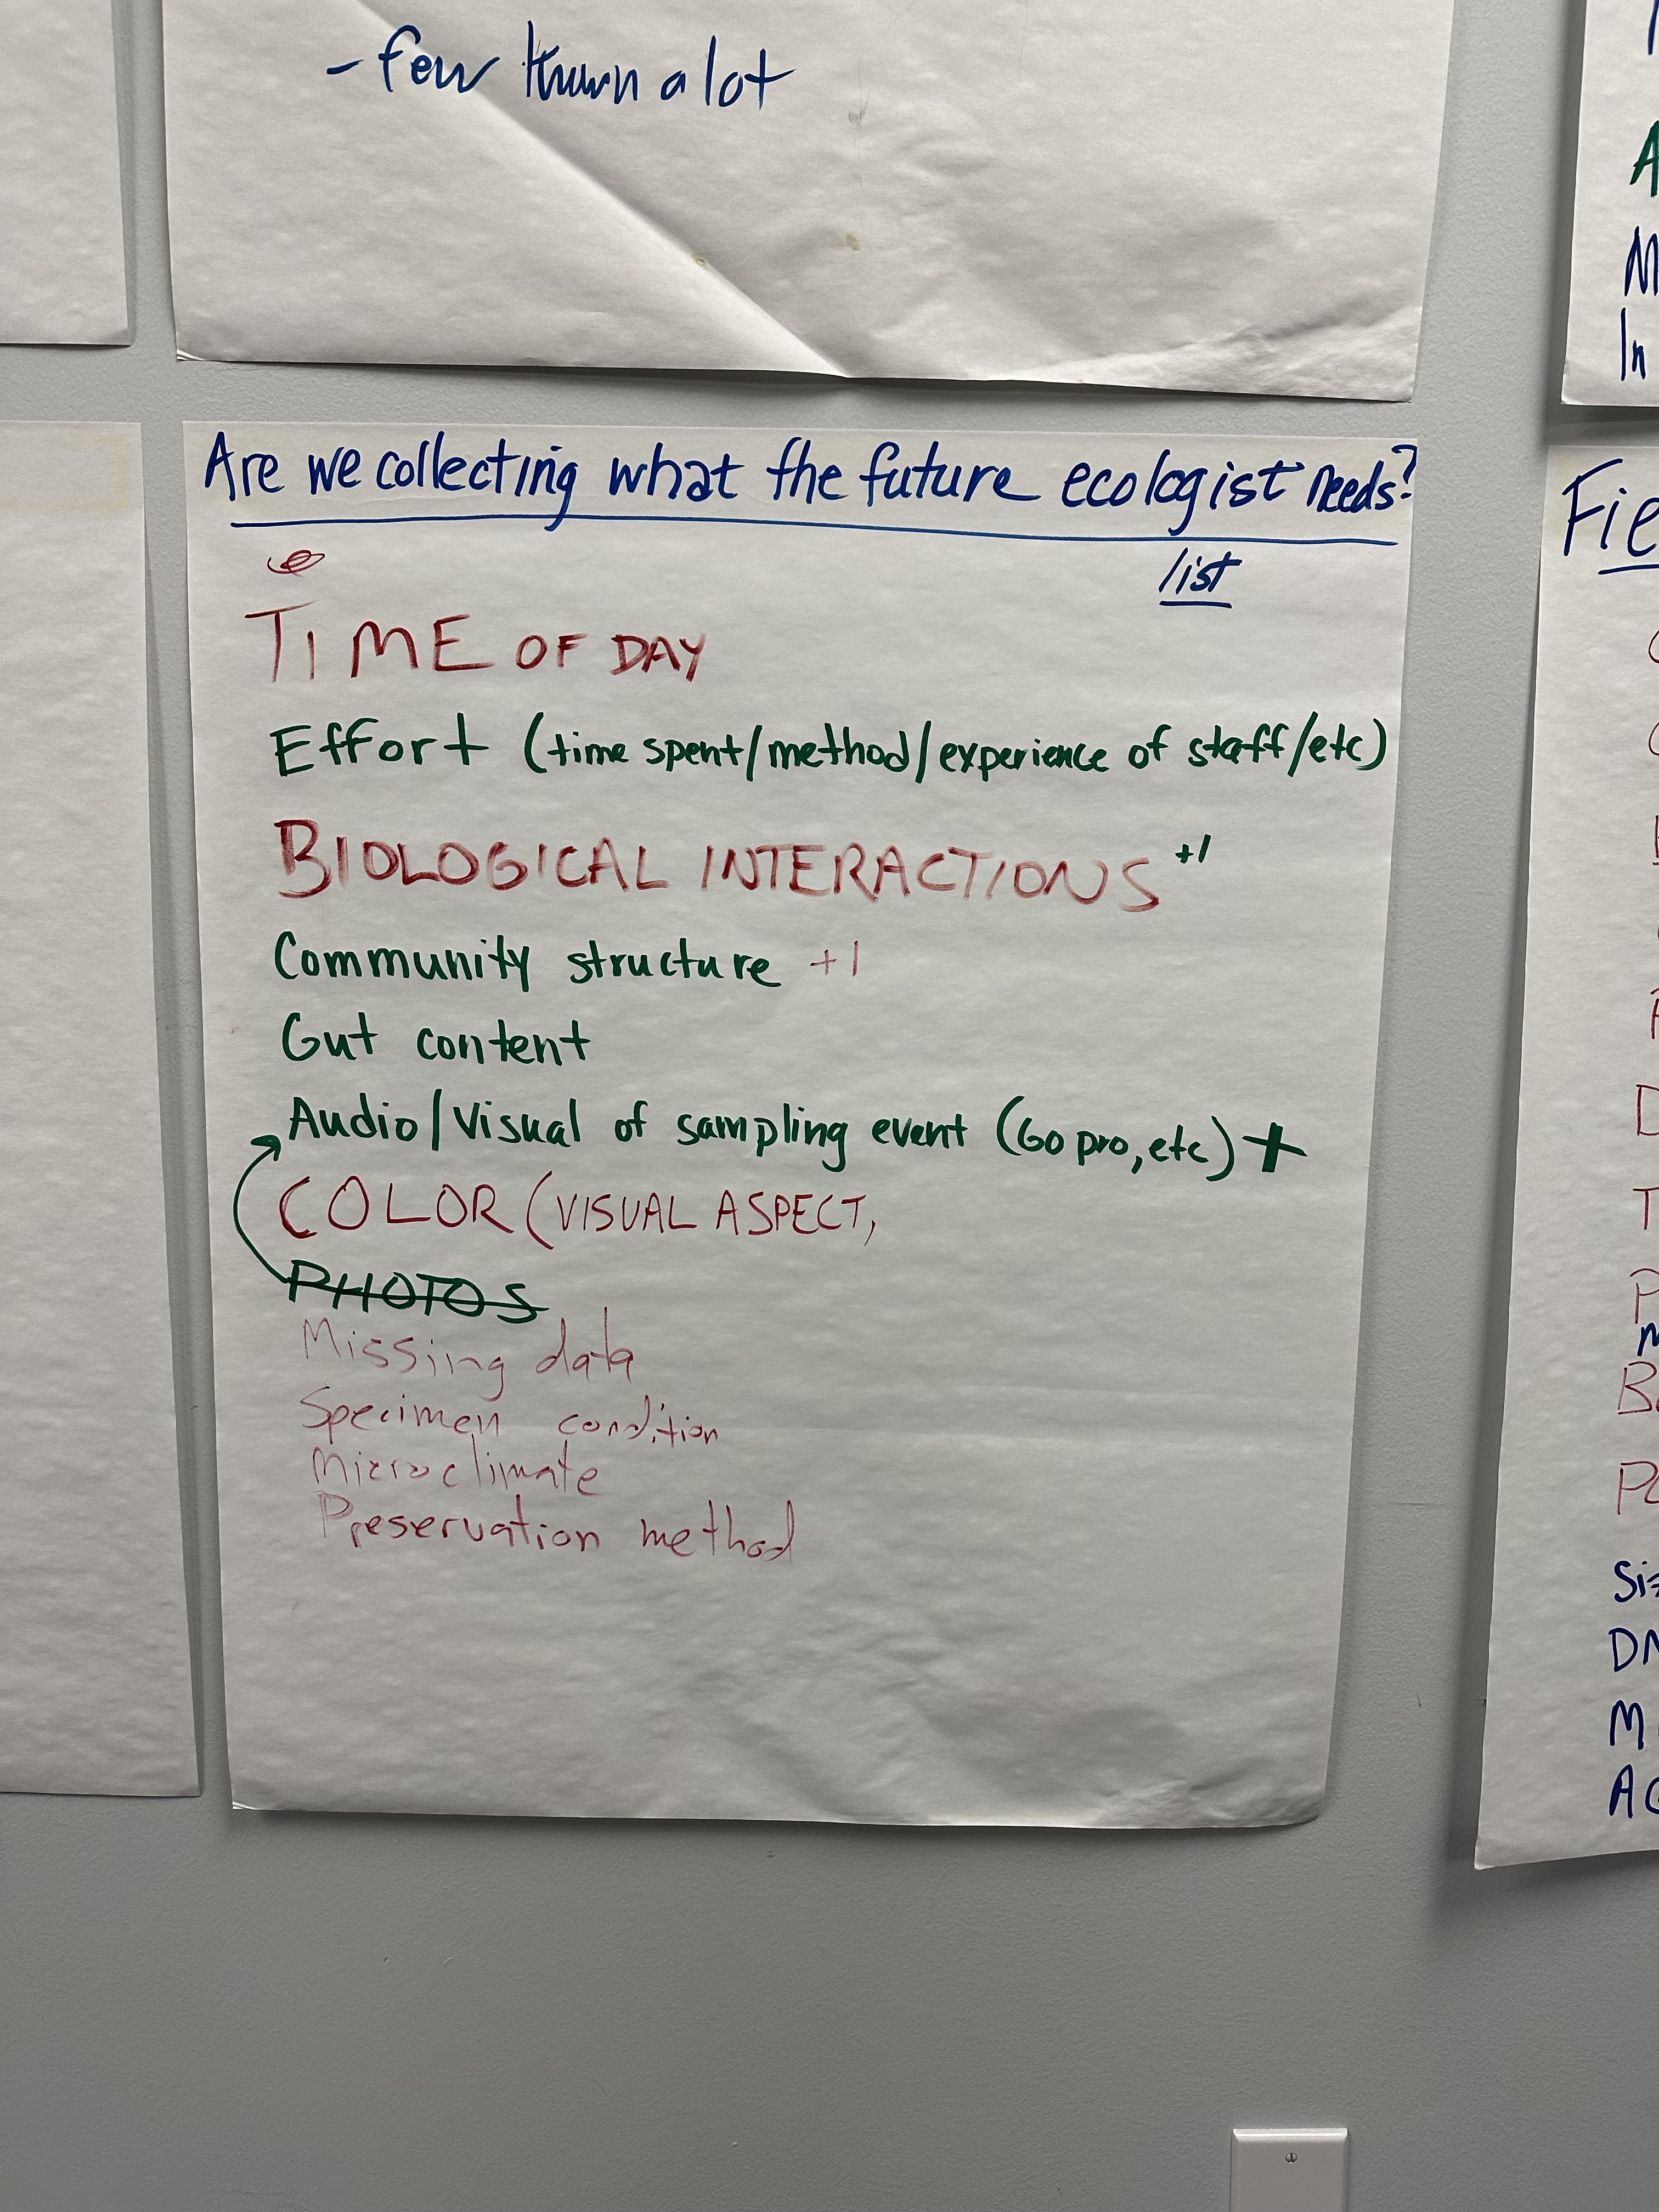 - few known a lot
Are we collecting what the future ecologist needs?
list
TIME OF DAY
Effort (time spent/method/experience of staff/etc)
BIOLOGICAL INTERACTIONS +1
Community structure +1
Gut content
Audio/Visual of sampling event (Go pro, etc) +
COLOR (VISUAL ASPECT,
PHOTOS
Missing data
Specimen condition
Microclimate
Preservation method
A
M
In
Fie
D
T
P
B
P
Siz
DN
M
AC